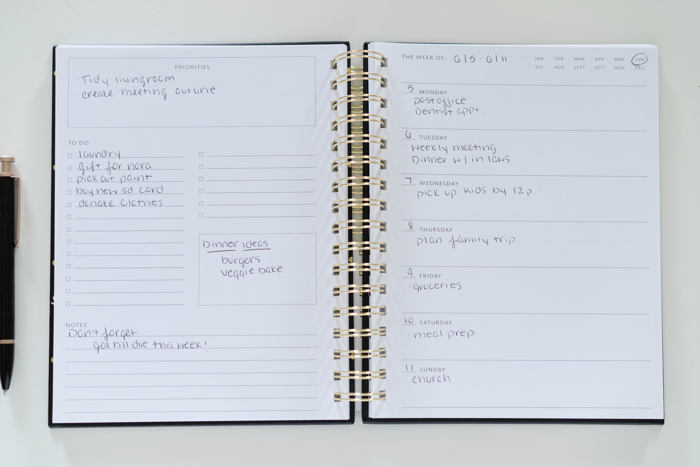 PRIORITIES
· Tidy livingroom
· create meeting outline
TO DO
laundry
gift for nora
pick out paint
buy new sd card
donate clothes
Dinner ideas
· burgers
veggie bake
NOTES
Don't forget
gas bill due this week!
THE WEEK OF: 6/5 - 6/11
JAN FEB MAR APR MAY JUN
JUL AUG SEPT OCT NOV DEC
5 MONDAY
post office
Dentist appt
6 TUESDAY
· Weekly meeting
Dinner w/ in laws
7 WEDNESDAY
pick up kids by 12p
8 THURSDAY
plan family trip
9 FRIDAY
· groceries
10 SATURDAY
· meal prep
11 SUNDAY
church